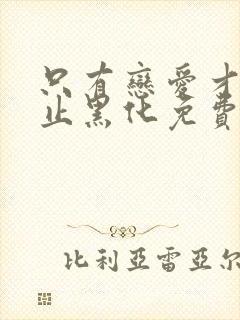 只有戀愛才
止黑化免費
比利亞雷亞尔